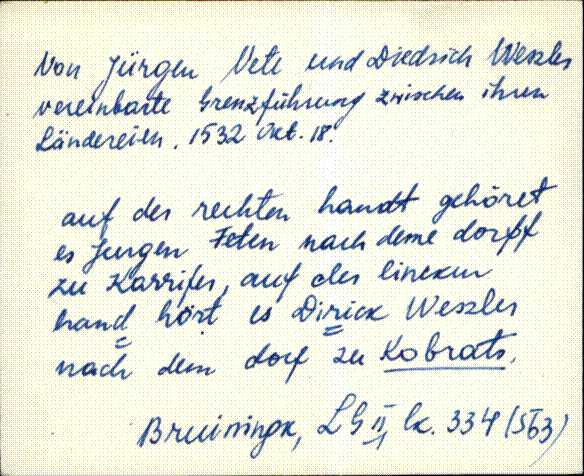 Von Jürgen Vete und Diedrich Weszler
vereinbarte Grenzführung zwischen ihren
Ländereien. 1532 Okt. 18.
auf der rechten handt gehöret
es Jurgen Feten nach deme dorpf
zu Karrifer, auf der lincken
hand hört es Dirick Weszler
nach dem dorf zu Kobrats.
Bruiningk, LG II, lk. 334 (563)